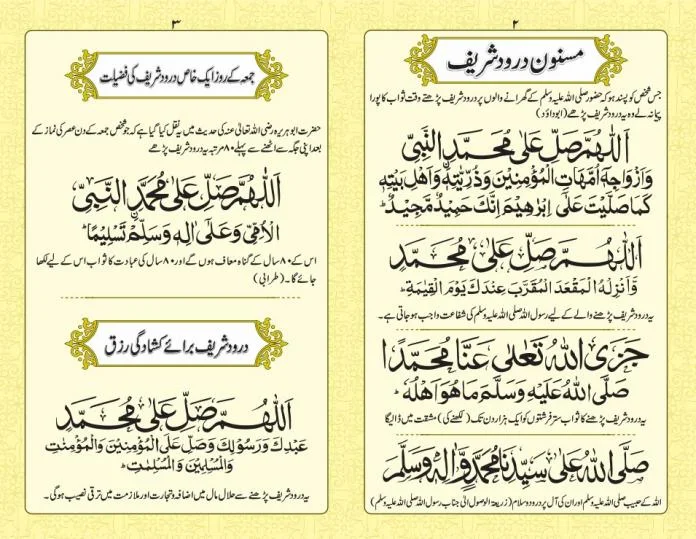 ۲
مسنون درود شریف
جس شخص کو پسند ہو کہ حضور صلی اللہ علیہ وسلم کے گھرانے والوں پر درود شریف پڑھتے وقت ثواب کا پورا
پیمانہ لے وہ یہ درود شریف پڑھے (ابوداؤد)
اَللّٰهُمَّ صَلِّ عَلٰى مُحَمَّدِ النَّبِيِّ
وَاَزْوَاجِهٖٓ اُمَّهَاتِ الْمُؤْمِنِيْنَ وَذُرِّيَّتِهٖ وَاَهْلِ بَيْتِهٖ
كَمَا صَلَّيْتَ عَلٰٓى اِبْرٰهِيْمَ اِنَّكَ حَمِيْدٌ مَّجِيْدٌ ؕ
اَللّٰهُمَّ صَلِّ عَلٰى مُحَمَّدٍ
وَّاَنْزِلْهُ الْمَقْعَدَ الْمُقَرَّبَ عِنْدَكَ يَوْمَ الْقِيٰمَةِ ؕ
یہ درود شریف پڑھنے والے کے لیے رسول اللہ صلی اللہ علیہ وسلم کی شفاعت واجب ہو جاتی ہے۔
جَزَى اللّٰهُ تَعَالٰى عَنَّا مُحَمَّدًا
صَلَّى اللّٰهُ عَلَيْهِ وَسَلَّمَ مَا هُوَ اَهْلُهٗ ؕ
یہ درود شریف پڑھنے کا ثواب ستر فرشتوں کو ایک ہزار دن تک (لکھنے کی) مشقت میں ڈالے گا
صَلَّى اللّٰهُ عَلٰى سَيِّدِنَا مُحَمَّدٍ وَّاٰلِهٖ وَسَلَّمَ
اللہ کے حبیب صلی اللہ علیہ وسلم اور ان کی آل پر درود و سلام (ذریعۃ الوصول الی جناب رسول اللہ صلی اللہ علیہ وسلم)
۳
جمعہ کے روز ایک خاص درود شریف کی فضیلت
حضرت ابوہریرہ رضی اللہ تعالیٰ عنہ کی حدیث میں یہ نقل کیا گیا ہے کہ جو شخص جمعہ کے دن عصر کی نماز کے
بعد اپنی جگہ سے اٹھنے سے پہلے ۸۰ مرتبہ یہ درود شریف پڑھے
اَللّٰهُمَّ صَلِّ عَلٰى مُحَمَّدِ ۨالنَّبِيِّ
الْاُمِّيِّ وَعَلٰٓى اٰلِهٖ وَسَلِّمْ تَسْلِيْمًا ؕ
اس کے ۸۰ سال کے گناہ معاف ہوں گے اور ۸۰ سال کی عبادت کا ثواب اس کے لیے لکھا
جائے گا۔ (طبرانی)
درود شریف برائے کشادگی رزق
اَللّٰهُمَّ صَلِّ عَلٰى مُحَمَّدٍ
عَبْدِكَ وَرَسُوْلِكَ وَصَلِّ عَلَى الْمُؤْمِنِيْنَ وَالْمُؤْمِنٰتِ
وَالْمُسْلِمِيْنَ وَالْمُسْلِمٰتِ ؕ
یہ درود شریف پڑھنے سے حلال مال میں اضافہ و تجارت اور ملازمت میں ترقی نصیب ہو گی۔